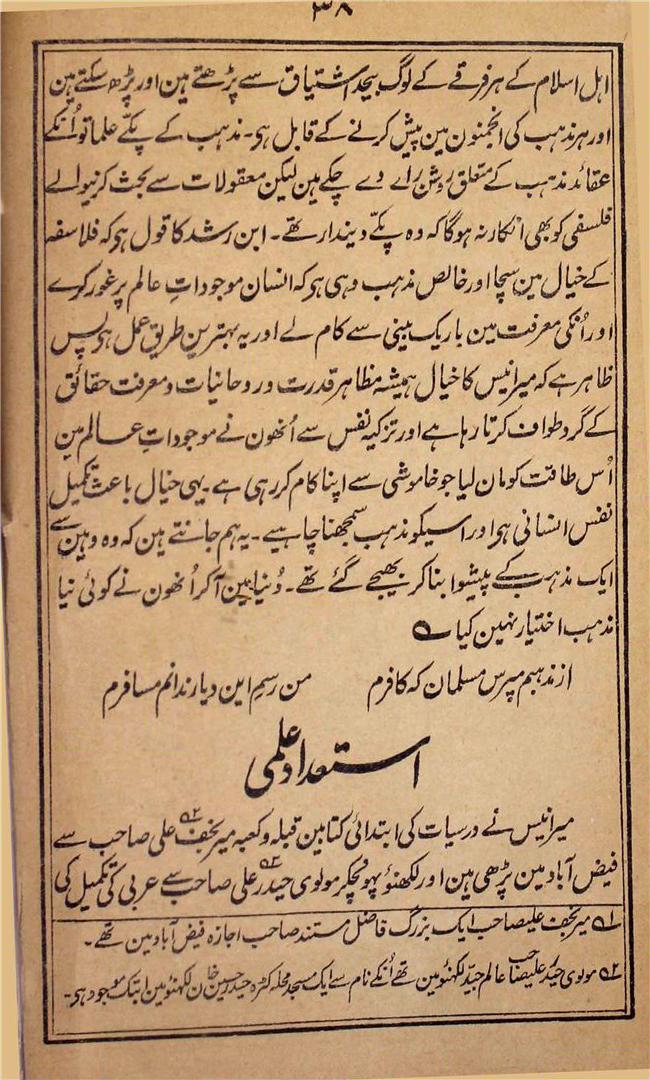 ۳۸
اہل اسلام کے ہر فرقے کے لوگ بیحد اشتیاق سے پڑھتے ہین اور پڑھ سکتے ہین
اور ہر مذہب کی انجمنون مین پیش کرنے کے قابل ہی۔ مذہب کے پکّے علما تو اُنکے
عقائد مذہب کے متعلق روشن راے دے چکے ہین لیکن معقولات سے بحث کرنیوالے
فلسفی کو بھی انکار نہ ہوگا کہ وہ پکّے دیندار تھے۔ ابن رشد کا قول ہی کہ فلاسفہ
کے خیال مین سچا اور خالص مذہب وہی ہی کہ انسان موجوداتِ عالم پر غور کرے
اور اُنکی معرفت مین باریک بینی سے کام لے اور یہ بہترین طریق عمل ہی پس
ظاہر ہے کہ میر انیس کا خیال ہمیشہ مظاہر قدرت و روحانیات و معرفت حقائق
کے گرد طواف کرتا رہا ہے اور تزکیہ نفس سے اُنھون نے موجوداتِ عالم مین
اُس طاقت کو مان لیا جو خاموشی سے اپنا کام کر رہی ہے۔ یہی خیال باعث تکمیل
نفس انسانی ہی اور اسیکو مذہب سمجھنا چاہیے۔ یہ ہم جانتے ہین کہ وہ وہین سے
ایک مذہب کے پیشوا بنا کر بھیجے گئے تھے۔ دُنیا مین آکر اُنھون نے کوئی نیا
مذہب اختیار نہین کیا ؎
از مذہبم مپرس مسلمان کہ کافرم من رسمِ این دیار ندانم مسافرم
استعداد علمی
میر انیس نے درسیات کی ابتدائی کتابین قبلہ و کعبہ میر نجف علی صاحب سے
فیض آباد مین پڑھی ہین اور لکھنؤ پہونچکر مولوی حیدر علی صاحب سے عربی کی تکمیل کی
؎۱ میر نجف علیصاحب ایک بزرگ فاضل مستند صاحب اجازہ فیض آباد مین تھے۔
؎۲ مولوی حیدر علیصاحب عالم جیّد لکھنؤ مین تھے اُنکے نام سے ایک مسجد محلہ کٹرہ حیدر حسین خان لکھنؤ مین ابتک موجود ہی۔